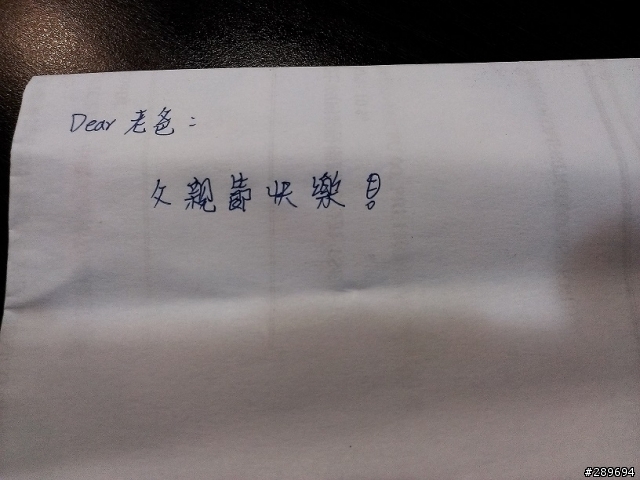 Dear 老爸：
父親節快樂！
#289694